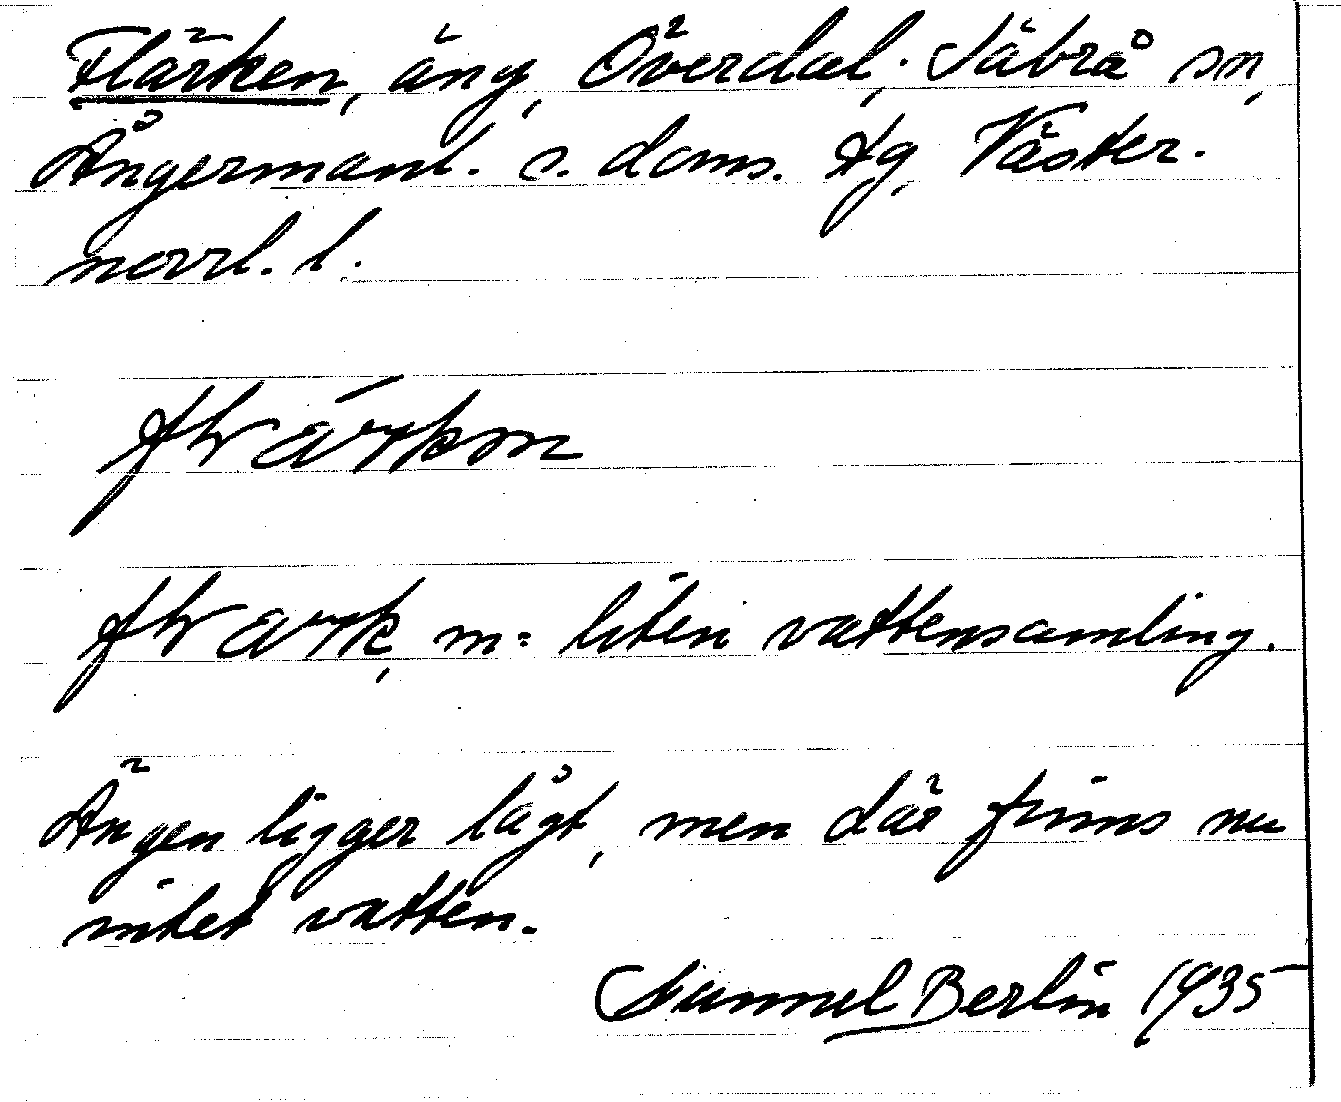 Flärken, äng, Överdal, Säbrå sn,
Ångermanl. s. doms. tg, Väster-
norrl. l.
liten vattensamling.
Ängen ligger lågt, men där finns nu
intet vatten.
Samuel Berlin 1935